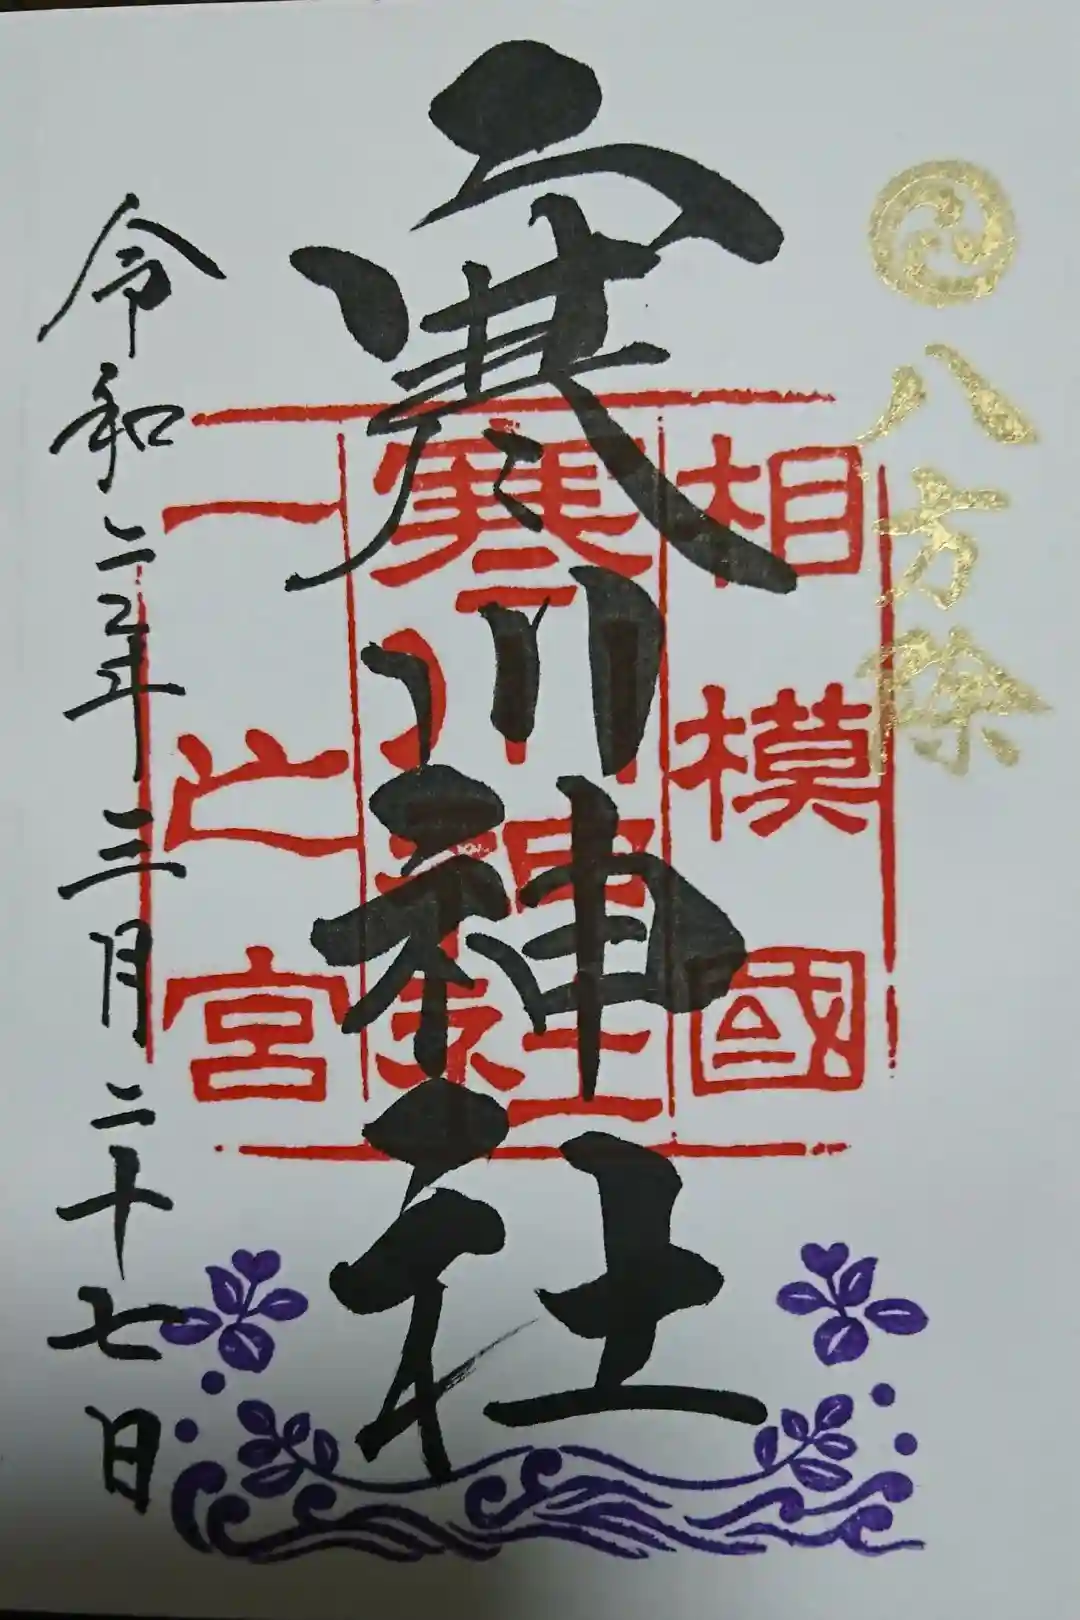 八方除
寒川神社
相模國
寒川神社
一之宮
令和二年三月二十七日